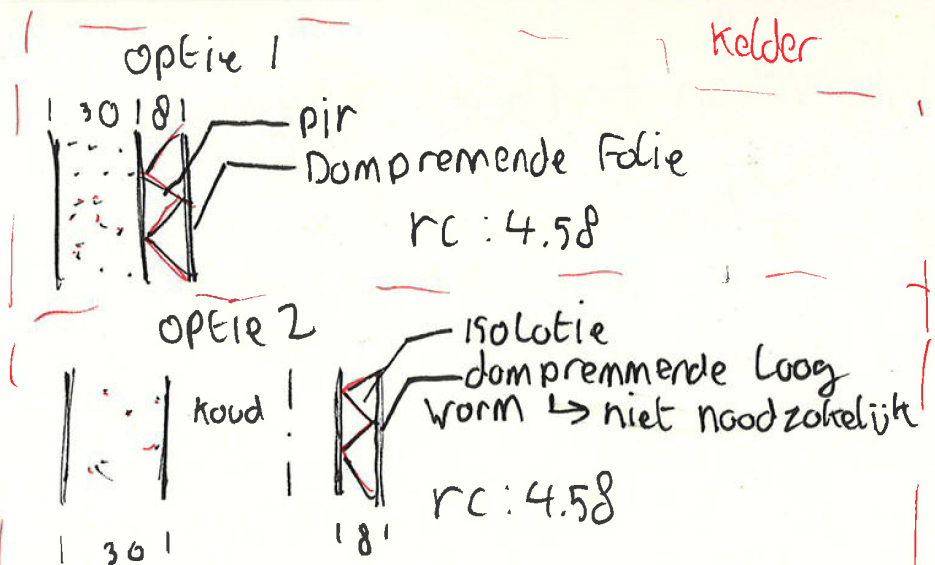 Kelder
Optie 1
30 8
pir
Dampremende Folie
rc : 4.58
Optie 2
isolatie
dampremmende laag
koud warm ↳ niet noodzakelijk
rc : 4.58
30 8